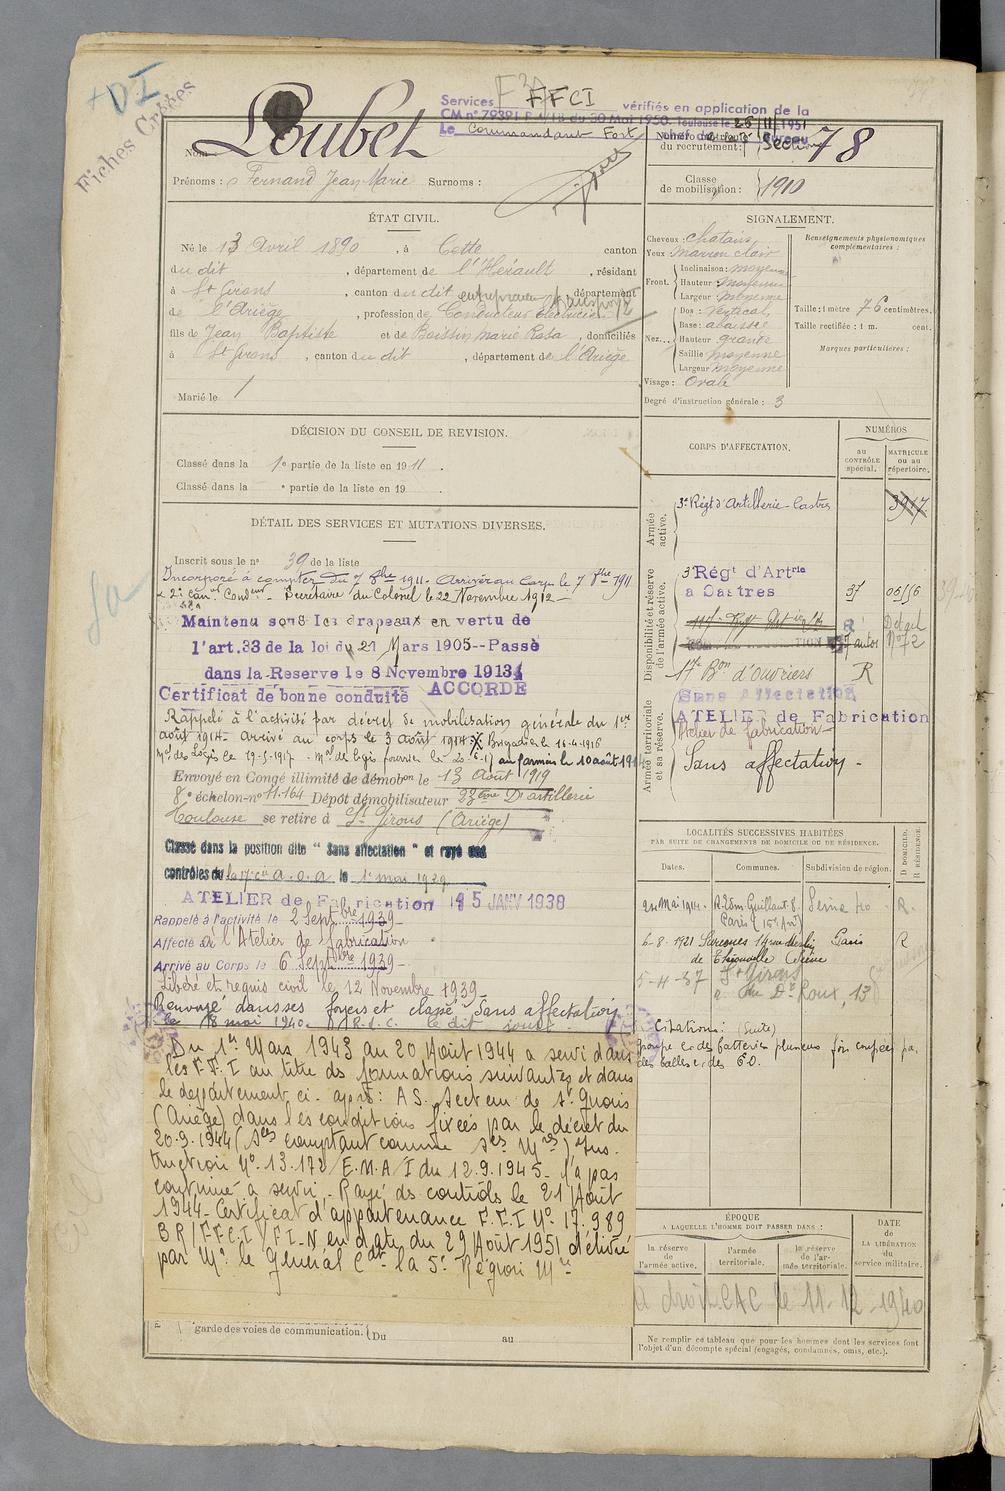 +DI
Fiches Créées
Services FFCI vérifiés en application de la
CM n° 79391 P.4/18 du 30 Mai 1950. Toulouse le 26/11/1951
Le Commandant Fort
Loubet
Nom :
Prénoms : Fernand Jean Marie Surnoms :
Numéro
du recrutement : 78
Classe
de mobilisation : 1910
ÉTAT CIVIL.
Né le 13 Avril 1890, à Cette canton
du dit, département de l'Hérault, résidant
à St Girons, canton du dit département
de l'Ariège, profession de Conducteur électricien
fils de Jean Baptiste et de Boissin Marie Rosa, domiciliés
à St Girons, canton du dit, département de l'Ariège
Marié le
SIGNALEMENT.
Cheveux : chatains
Yeux : Marron clair
Front. Inclinaison : moyenne
Hauteur : moyenne
Largeur : moyenne
Nez... Dos : vertical
Base : abaissée
Hauteur grande
Saillie moyenne
Largeur moyenne
Visage : Ovale
Degré d'instruction générale : 3
Renseignements physionomiques
complémentaires :
Taille : 1 mètre 76 centimètres.
Taille rectifiée : 1 m. cent.
Marques particulières :
DÉCISION DU CONSEIL DE REVISION.
Classé dans la 1e partie de la liste en 1911.
Classé dans la e partie de la liste en 19
DÉTAIL DES SERVICES ET MUTATIONS DIVERSES.
Inscrit sous le n° 39 de la liste
Incorporé à compter du 7 8bre 1911. Arrivé au Corps le 7 8bre 1911
Secrétaire du Colonel le 22 Novembre 1912
Maintenu sous les drapeaux en vertu de
l'art. 33 de la loi du 21 Mars 1905--Passé
dans la Reserve le 8 Novembre 1913
Certificat de bonne conduite ACCORDÉ
Rappelé à l'activité par décret de mobilisation générale du 1er
août 1914. arrivé au corps le 3 août 1914. Brigadier le 16-4-1916
Mal des Logis le 19-5-1917
Envoyé en Congé illimité de démobon le 13 Août 1919
8e échelon-n° 11.164 Dépôt démobilisateur 23ème D'artillerie
Toulouse se retire à St Girons (Ariège)
Classé dans la position dite "Sans affectation" et rayé des
contrôles du le 1er mai 1929
ATELIER de Fabrication 15 JANV 1938
Rappelé à l'activité le 2 Septbre 1939
Affecté à l'Atelier de fabrication
Arrivé au Corps le 6 Septbre 1939
Libéré et requis civil le 12 Novembre 1939
Renvoyé dans ses foyers et classé Sans affectation
le 18 mai 1940. R.d.C. le dit jour
Du 1er Mars 1943 au 20 Août 1944 a servi dans
les F.F.I au titre des formations suivantes et dans
le département ci-après : A S. Secteur de St Girons
(Ariège) dans les conditions fixées par le décret du
20.9.1944 (Ses comptant comme Ses Mres) Ins-
truction N° 13.172/E.M.A/I du 12.9.1945. N'a pas
continué à servir. Rayé des contrôles le 21 Août
1944. Certificat d'appartenance F.F.I N° 17.989
BR/FFCI/FI-N en date du 29 Août 1951 délivré
par Mr le Général Cdt la 5e Région Mre
garde des voies de communication. Du au
CORPS D'AFFECTATION.
NUMÉROS
au
CONTRÔLE
spécial.
MATRICULE
ou au
répertoire.
Armée
active.
3e Régt d'Artillerie - Castres 3917
Disponibilité et réserve
de l'armée active.
3e Régt d'Artrie
a Castres 37
17e Bon d'ouvriers R
Armée territoriale
et sa réserve.
Sans affectation
ATELIER de Fabrication
Atelier de fabrication
Sans affectation
LOCALITÉS SUCCESSIVES HABITÉES
PAR SUITE DE CHANGEMENTS DE DOMICILE OU DE RÉSIDENCE.
Dates. Communes. Subdivision de région. D DOMICILE. R RÉSIDENCE.
R. Edm. Guillaut 8 R.
Paris (15e Arrt)
6-8-1921 Paris R
5-4-37 St Girons
Citations : (Suite)
des balles et des 60.
ÉPOQUE
A LAQUELLE L'HOMME DOIT PASSER DANS :
la réserve
de l'armée active.
l'armée
territoriale.
la réserve
de l'ar-
mée territoriale.
DATE
de
LA LIBÉRATION
du
service militaire.
A droit CAC le 11-12-1940
Ne remplir ce tableau que pour les hommes dont les services font
l'objet d'un décompte spécial (engagés, condamnés, omis, etc.).